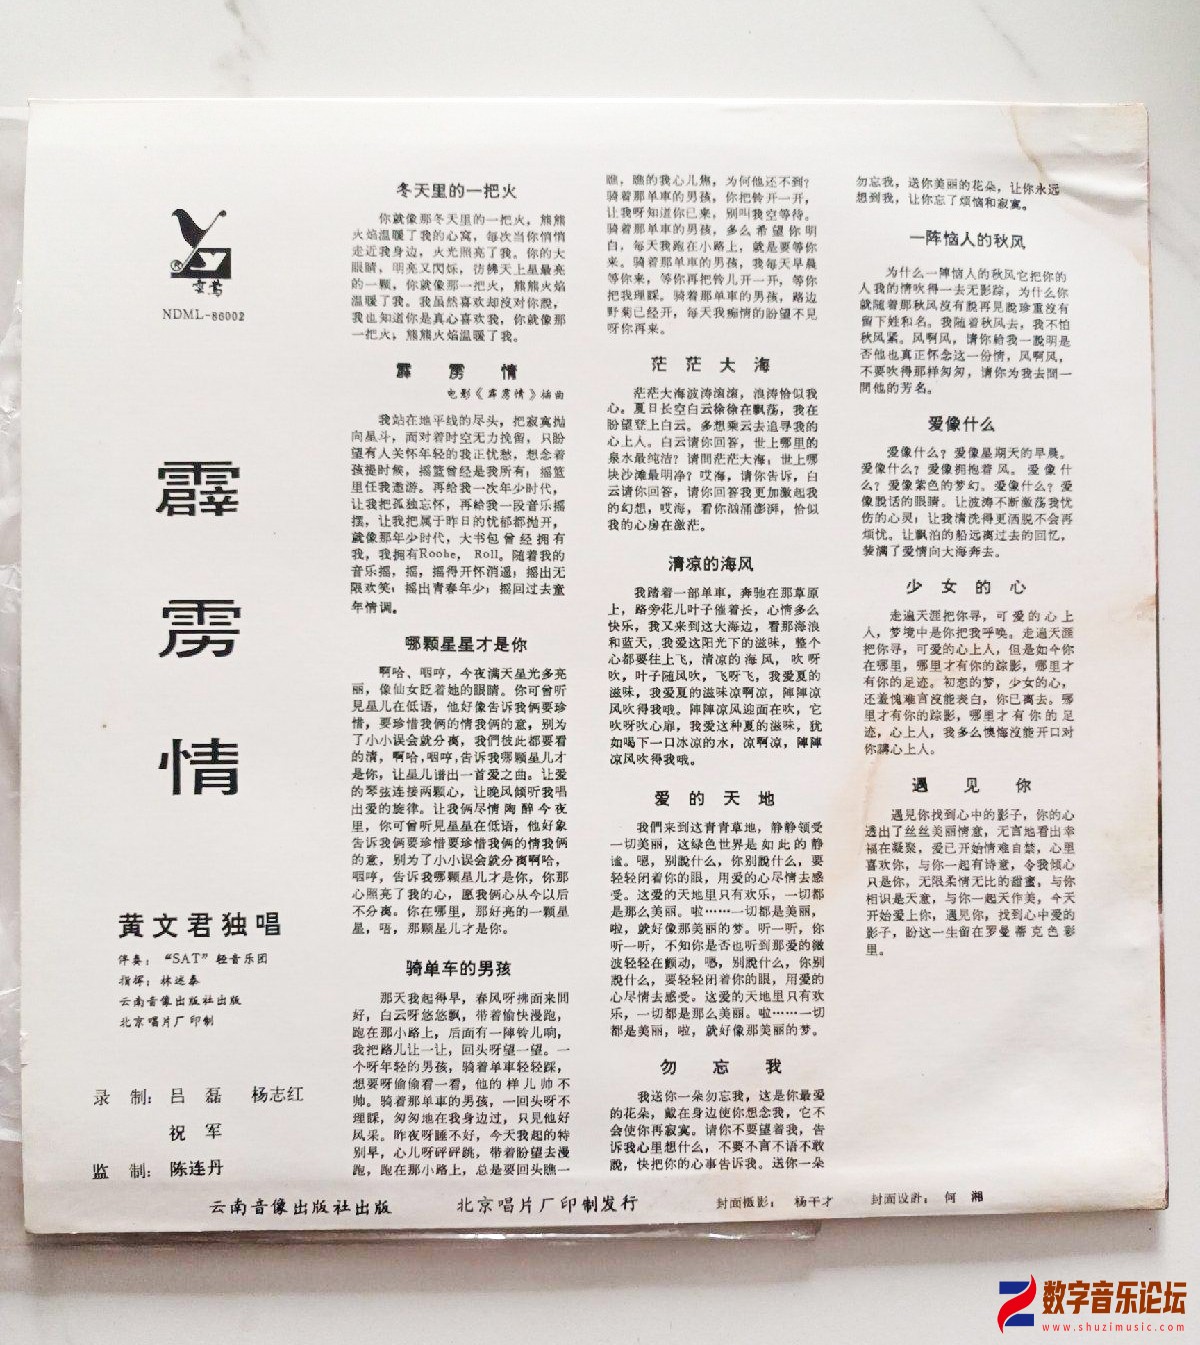 NDML-86002
霹
雳
情
黄文君独唱
伴奏：“SAT”轻音乐团
指挥：林达泰
云南音像出版社出版
北京唱片厂印制
录 制：吕 磊 杨志红
祝 军
监 制：陈连丹
冬天里的一把火
你就像那冬天里的一把火，熊熊
火焰温暖了我的心窝，每次当你悄悄
走近我身边，火光照亮了我。你的大
眼睛，明亮又闪烁，彷彿天上星最亮
的一颗，你就像那一把火，熊熊火焰
温暖了我。我虽然喜欢却沒对你脱，
我也知道你是真心喜欢我，你就像那
一把火，熊熊火焰温暖了我。
霹 雳 情
电影《霹雳情》插曲
我站在地平线的尽头，把寂寞抛
向星斗，面对着时空无力挽留，只盼
望有人关怀年轻的我正忧愁，想念着
孩提时候，摇篮曾经是我所有，摇篮
里任我遨游。再给我一次年少时代，
让我把孤独忘怀，再给我一段音乐摇
摆，让我把属于昨日的忧郁都抛开，
就像那年少时代，大书包曾经拥有
我，我拥有Roohe，Roll。随着我的
音乐摇，摇，摇得开怀消遥；摇出无
限欢笑；摇出青春年少；摇回过去童
年情调。
哪颗星星才是你
啊哈、咽哼，今夜满天星光多亮
丽，像仙女眨着她的眼睛。你可曾听
見星儿在低语，他好像告诉我俩要珍
惜，要珍惜我俩的情我俩的意，别为
了小小误会就分离，我們彼此都要看
的清，啊哈，咽哼，告诉我哪颗星儿才
是你，让星儿谱出一首爱之曲。让爱
的琴弦连接两颗心，让晚风倾听我唱
出爱的旋律。让我俩尽情陶醉今夜
里，你可曾听見星星在低语，他好象
告诉我俩要珍惜要珍惜我俩的情我俩
的意，别为了小小误会就分离啊哈，
咽哼，告诉我哪颗星儿才是你，你那
心照亮了我的心，愿我俩心从今以后
不分离。你在哪里，那好亮的一颗星
星，唔，那颗星儿才是你。
骑单车的男孩
那天我起得早，春风呀拂面来問
好，白云呀悠悠飘，带着愉快漫跑，
跑在那小路上，后面有一陣铃儿响，
我把路儿让一让，回头呀望一望。一
个呀年轻的男孩，骑着单車轻轻踩，
想要呀偷偷看一看，他的样儿帅不
帅。骑着那单車的男孩，一回头呀不
理睬，匆匆地在我身边过，只見他好
风采。昨夜呀睡不好，今天我起的特
别早，心儿呀砰砰跳，带着盼望去漫
跑，跑在那小路上，总是要回头瞧一
瞧，瞧的我心儿焦，为何他还不到？
骑着那单車的男孩，你把铃开一开，
让我呀知道你已来，别叫我空等待。
骑着那单車的男孩，多么希望你明
白，每天我跑在小路上，就是要等你
来。骑着那单車的男孩，我每天早晨
等你来，等你再把铃儿开一开，等你
把我理睬。骑着那单車的男孩，路边
野菊已经开，每天我痴情的盼望不見
呀你再来。
茫 茫 大 海
茫茫大海波涛滚滚，浪涛恰似我
心。夏日长空白云徐徐在飘荡，我在
盼望登上白云。多想乘云去追寻我的
心上人。白云请你回答，世上哪里的
泉水最纯洁？请問茫茫大海；世上哪
块沙滩最明净？哎海，请你告诉，白
云请你回答，请你回答我更加激起我
的幻想，哎海，看你汹涌澎湃，恰似
我的心房在激茫。
清凉的海风
我踏着一部单車，奔驰在那草原
上，路旁花儿叶子催着长，心情多么
快乐，我又来到这大海边，看那海浪
和蓝天，我爱这阳光下的滋味，整个
心都要往上飞，清凉的海风，吹呀
吹，叶子随风吹，飞呀飞，我爱夏的
滋味，我爱夏的滋味凉啊凉，陣陣凉
风吹得我哦。陣陣凉风迎面在吹，它
吹呀吹心扉，我爱这种夏的滋味，犹
如喝下一口冰凉的水，凉啊凉，陣陣
凉风吹得我哦。
爱 的 天 地
我們来到这青青草地，静静领受
一切美丽，这绿色世界是如此的静
谧。嗯，别脱什么，你别脱什么，要
轻轻闭着你的眼，用爱的心尽情去感
受。这爱的天地里只有欢乐，一切都
是那么美丽。啦……一切都是美丽，
啦，就好像那美丽的梦。听一听，你
听一听，不知你是否也听到那爱的微
波轻轻在颤动，嗯，别脱什么，你别
脱什么，要轻轻闭着你的眼，用爱的
心尽情去感受。这爱的天地里只有欢
乐，一切都是那么美丽。啦……一切
都是美丽，啦，就好像那美丽的梦。
勿 忘 我
我送你一朵勿忘我，这是你最爱
的花朵，戴在身边使你想念我，它不
会使你再寂寞。请你不要望着我，告
诉我心里想什么，不要不言不语不敢
脱，快把你的心事告诉我。送你一朵
勿忘我，送你美丽的花朵，让你永远
想到我，让你忘了烦恼和寂寞。
一阵恼人的秋风
为什么一陣恼人的秋风它把你的
人我的情吹得一去无影踪，为什么你
就随着那秋风沒有脱再見脱珍重沒有
留下姓和名。我随着秋风去，我不怕
秋风紧。风啊风，请你給我一脱明是
否他也真正怀念这一份情，风啊风，
不要吹得那样匆匆，请你为我去問一
問他的芳名。
爱像什么
爱像什么？爱像星期天的早晨。
爱像什么？爱像拥抱着风。爱像什
么？爱像紫色的梦幻。爱像什么？爱
像脱话的眼睛。让波涛不断激荡我忧
伤的心灵；让我情洗得更洒脱不会再
烦忧。让飘泊的船远离过去的回忆，
装满了爱情向大海奔去。
少 女 的 心
走遍天涯把你寻，可爱的心上
人，梦境中是你把我呼唤。走遍天涯
把你寻，可爱的心上人，但是如今你
在哪里，哪里才有你的踪影，哪里才
有你的足迹。初恋的梦，少女的心，
还羞愧难言沒能表白，你已离去。哪
里才有你的踪影，哪里才有你的足
迹，心上人，我多么懊悔沒能开口对
你講心上人。
遇 见 你
遇見你找到心中的影子，你的心
透出了丝丝美丽情意，无言地看出幸
福在凝聚，爱已开始情难自禁，心里
喜欢你，与你一起有诗意，令我倾心
只是你，无限柔情无比的甜蜜，与你
相识是天意，与你一起天作美，今天
开始爱上你，遇見你，找到心中爱的
影子，盼这一生留在罗曼蒂克色彩
里。
云南音像出版社出版 北京唱片厂印制发行 封面摄影：杨干才 封面设計：何 湘
数字音乐论坛
www.shuzimusic.com